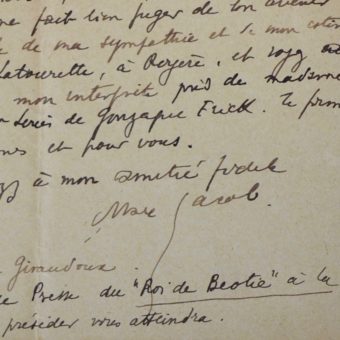 me fait bien juger de ton avenir
de ma sympathie et de mon
Latourette, à Rogere, et
mon interprète près de madame
series de Gonzague Frick. Te
et pour vous.
à mon amitié fidele
Max Jacob.
Giraudoux.
Presse du "Roi de Beotie" à la
présider vous atteindra.